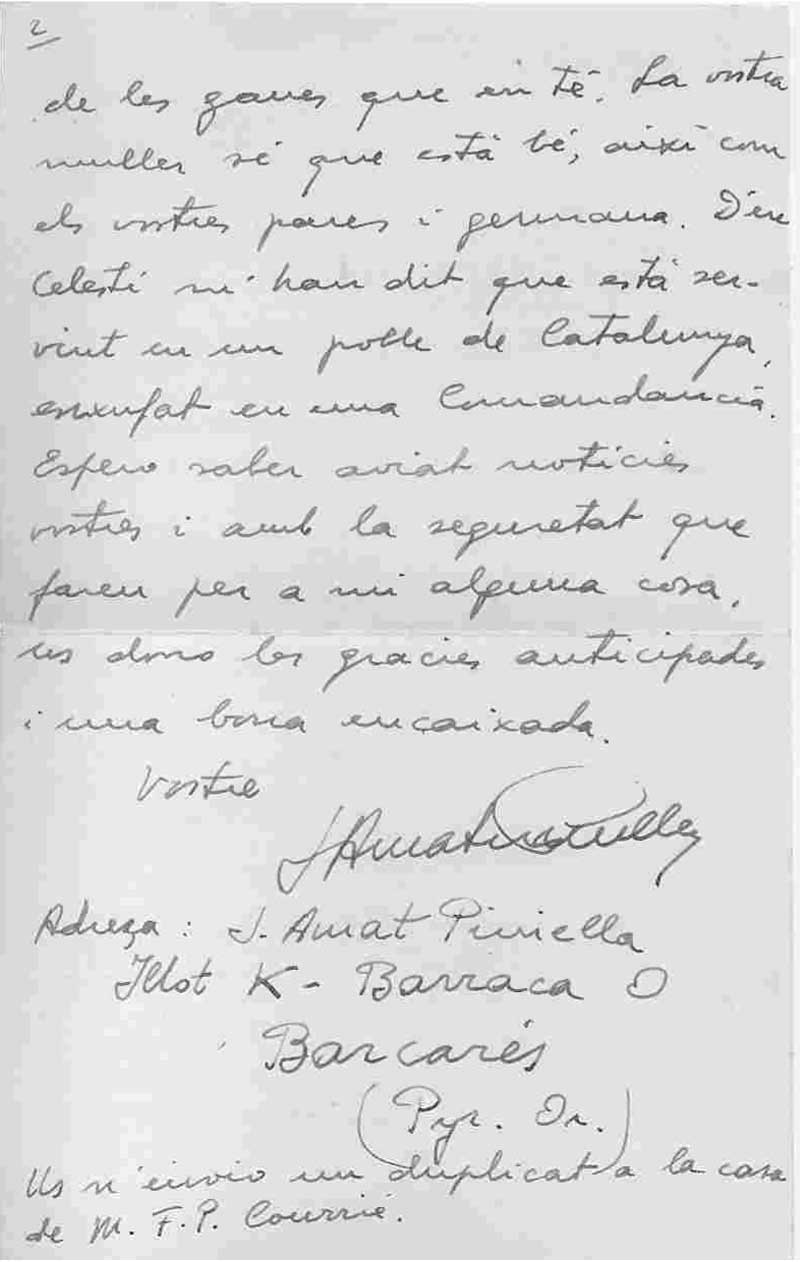 2
de les ganes que en té. La vostra
muller sé que està bé, així com
els vostres pares i germana. D'en
Celestí m'han dit que està ser-
vint en un poble de Catalunya,
enxufat en una Comandancia.
Espero saber aviat noticies
vostres i amb la seguretat que
fareu per a mi alguna cosa,
us dono les gracies anticipades
i una bona encaixada.
Vostre
J. Amat Piniella
Adreça : J. Amat Piniella
Illot K - Barraca O
Barcarés
(Pyr. Or.)
Us n'envio un duplicat a la casa
de M. F. P. Courrié.